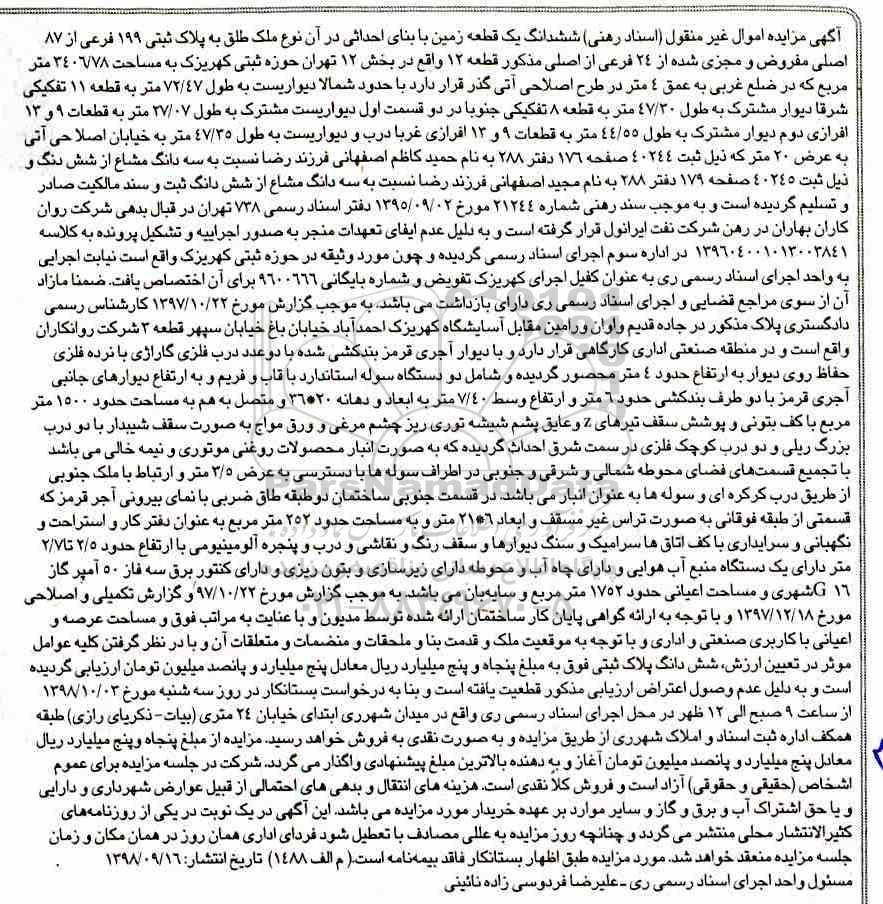 آگهی مزایده اموال غیر منقول (اسناد رهنی) ششدانگ یک قطعه زمین با بنای احداثی در آن نوع ملک طلق به پلاک ثبتی ۱۹۹ فرعی از ۸۷
اصلی مفروض و مجزی شده از ۲۴ فرعی از اصلی مذکور قطعه ۱۲ واقع در بخش ۱۲ تهران حوزه ثبتی کهریزک به مساحت ۳۴۰۶/۷۸ متر
مربع که در ضلع غربی به عمق ۴ متر در طرح اصلاحی آتی گذر قرار دارد با حدود شمالا دیواریست به طول ۷۲/۴۷ متر به قطعه ۱۱ تفکیکی
شرقا دیوار مشترک به طول ۴۷/۳۰ متر به قطعه ۸ تفکیکی جنوبا در دو قسمت اول دیواریست مشترک به طول ۲۷/۰۷ متر به قطعات ۹ و ۱۳
افرازی دوم دیوار مشترک به طول ۴۴/۵۵ متر به قطعات ۹ و ۱۳ افرازی غربا درب و دیواریست به طول ۴۷/۳۵ متر به خیابان اصلا حی آتی
به عرض ۲۰ متر که ذیل ثبت ۴۰۲۴۴ صفحه ۱۷۶ دفتر ۲۸۸ به نام حمید کاظم اصفهانی فرزند رضا نسبت به سه دانگ مشاع از شش دنگ و
ذیل ثبت ۴۰۲۴۵ صفحه ۱۷۹ دفتر ۲۸۸ به نام مجید اصفهانی فرزند رضا نسبت به سه دانگ مشاع از شش دانگ ثبت و سند مالکیت صادر
و تسلیم گردیده است و به موجب سند رهنی شماره ۲۱۲۴۴ مورخ ۱۳۹۵/۰۹/۰۲ دفتر اسناد رسمی ۷۳۸ تهران در قبال بدهی شرکت روان
کاران بهاران در رهن شرکت نفت ایرانول قرار گرفته است و به دلیل عدم ایفای تعهدات منجر به صدور اجراییه و تشکیل پرونده به کلاسه
۱۳۹۶۰۴۰۰۱۰۱۳۰۰۳۸۴۱ در اداره سوم اجرای اسناد رسمی گردیده و چون مورد وثیقه در حوزه ثبتی کهریزک واقع است نیابت اجرایی
به واحد اجرای اسناد رسمی ری به عنوان کفیل اجرای کهریزک تفویض و شماره بایگانی ۹۶۰۰۶۶۶ برای آن اختصاص یافت. ضمنا مازاد
آن از سوی مراجع قضایی و اجرای اسناد رسمی ری دارای بازداشت می باشد، به موجب گزارش مورخ ۱۳۹۷/۱۰/۲۲ کارشناس رسمی
دادگستری پلاک مذکور در جاده قدیم واوان ورامین مقابل آسایشگاه کهریزک احمدآباد خیابان باغ خیابان سپهر قطعه ۳ شرکت روانکاران
واقع است و در منطقه صنعتی اداری کارگاهی قرار دارد و با دیوار آجری قرمز بندکشی شده با دو عدد درب فلزی گاراژی با نرده فلزی
حفاظ روی دیوار به ارتفاع حدود ۴ متر محصور گردیده و شامل دو دستگاه سوله استاندارد با قاب و فریم و به ارتفاع دیوارهای جانبی
آجری قرمز با دو طرف بندکشی حدود ۶ متر و ارتفاع وسط ۷/۴۰ متر به ابعاد و دهانه ۲۰*۳۶ و متصل به هم به مساحت حدود ۱۵۰۰ متر
مربع با کف بتونی و پوشش سقف تیرهای z وعایق پشم شیشه توری ریز چشم مرغی و ورق مواج به صورت سقف شیبدار با دو درب
بزرگ ریلی و دو درب کوچک فلزی در سمت شرق احداث گردیده که به صورت انبار محصولات روغنی موتوری و نیمه خالی می باشد
با تجمیع قسمت‌های فضای محوطه شمالی و شرقی و جنوبی در اطراف سوله ها با دسترسی به عرض ۳/۵ متر و ارتباط با ملک جنوبی
از طریق درب کرکره ای و سوله ها به عنوان انبار می باشد. در قسمت جنوبی ساختمان دوطبقه طاق ضربی با نمای بیرونی آجر قرمز که
قسمتی از طبقه فوقانی به صورت تراس غیر مسقف و ابعاد ۶*۲۱ متر و به مساحت حدود ۲۵۲ متر مربع به عنوان دفتر کار و استراحت و
نگهبانی و سرایداری با کف اتاق ها سرامیک و سنگ دیوارها و سقف رنگ و نقاشی و درب و پنجره آلومینیومی با ارتفاع حدود ۲/۵ تا ۲/۷
متر دارای یک دستگاه منبع آب هوایی و دارای چاه آب و محوطه دارای زیرسازی و بتون ریزی و دارای کنتور برق سه فاز ۵۰ آمپر گاز
G ۱۶ شهری و مساحت اعیانی حدود ۱۷۵۲ متر مربع و سایه‌بان می باشد. به موجب گزارش مورخ ۹۷/۱۰/۲۲ و گزارش تکمیلی و اصلاحی
مورخ ۱۳۹۷/۱۲/۱۸ و با توجه به ارائه گواهی پایان کار ساختمان ارائه شده توسط مدیون و با عنایت به مراتب فوق و مساحت عرصه و
اعیانی با کاربری صنعتی و اداری و با توجه به موقعیت ملک و قدمت بنا و ملحقات و منضمات و متعلقات آن و با در نظر گرفتن کلیه عوامل
موثر در تعیین ارزش، شش دانگ پلاک ثبتی فوق به مبلغ پنجاه و پنج میلیارد ریال معادل پنج میلیارد و پانصد میلیون تومان ارزیابی گردیده
است و به دلیل عدم وصول اعتراض ارزیابی مذکور قطعیت یافته است و بنا به درخواست بستانکار در روز سه شنبه مورخ ۱۳۹۸/۱۰/۰۳
از ساعت ۹ صبح الی ۱۲ ظهر در محل اجرای اسناد رسمی ری واقع در میدان شهرری ابتدای خیابان ۲۴ متری (بیات- ذکریای رازی) طبقه
همکف اداره ثبت اسناد و املاک شهرری از طریق مزایده و به صورت نقدی به فروش خواهد رسید. مزایده از مبلغ پنجاه وپنج میلیارد ریال
معادل پنج میلیارد و پانصد میلیون تومان آغاز و به دهنده بالاترین مبلغ پیشنهادی واگذار می گردد. شرکت در جلسه مزایده برای عموم
اشخاص (حقیقی و حقوقی) آزاد است و فروش کلا نقدی است. هزینه های انتقال و بدهی های احتمالی از قبیل عوارض شهرداری و دارایی
و یا حق اشتراک آب و برق و گاز و سایر موارد بر عهده خریدار مورد مزایده می باشد. این آگهی در یک نوبت در یکی از روزنامه‌های
کثیرالانتشار محلی منتشر می گردد و چنانچه روز مزایده به عللی مصادف با تعطیل شود فردای اداری همان روز در همان مکان و زمان
جلسه مزایده منعقد خواهد شد. مورد مزایده طبق اظهار بستانکار فاقد بیمه‌نامه است.( م الف ۱۴۸۸) تاریخ انتشار: ۱۳۹۸/۰۹/۱۶
مسئول واحد اجرای اسناد رسمی ری -علیرضا فردوسی زاده نائینی
ParsNamadData
۰۲۱-۸۸۳۴۹۶۷۰-۵